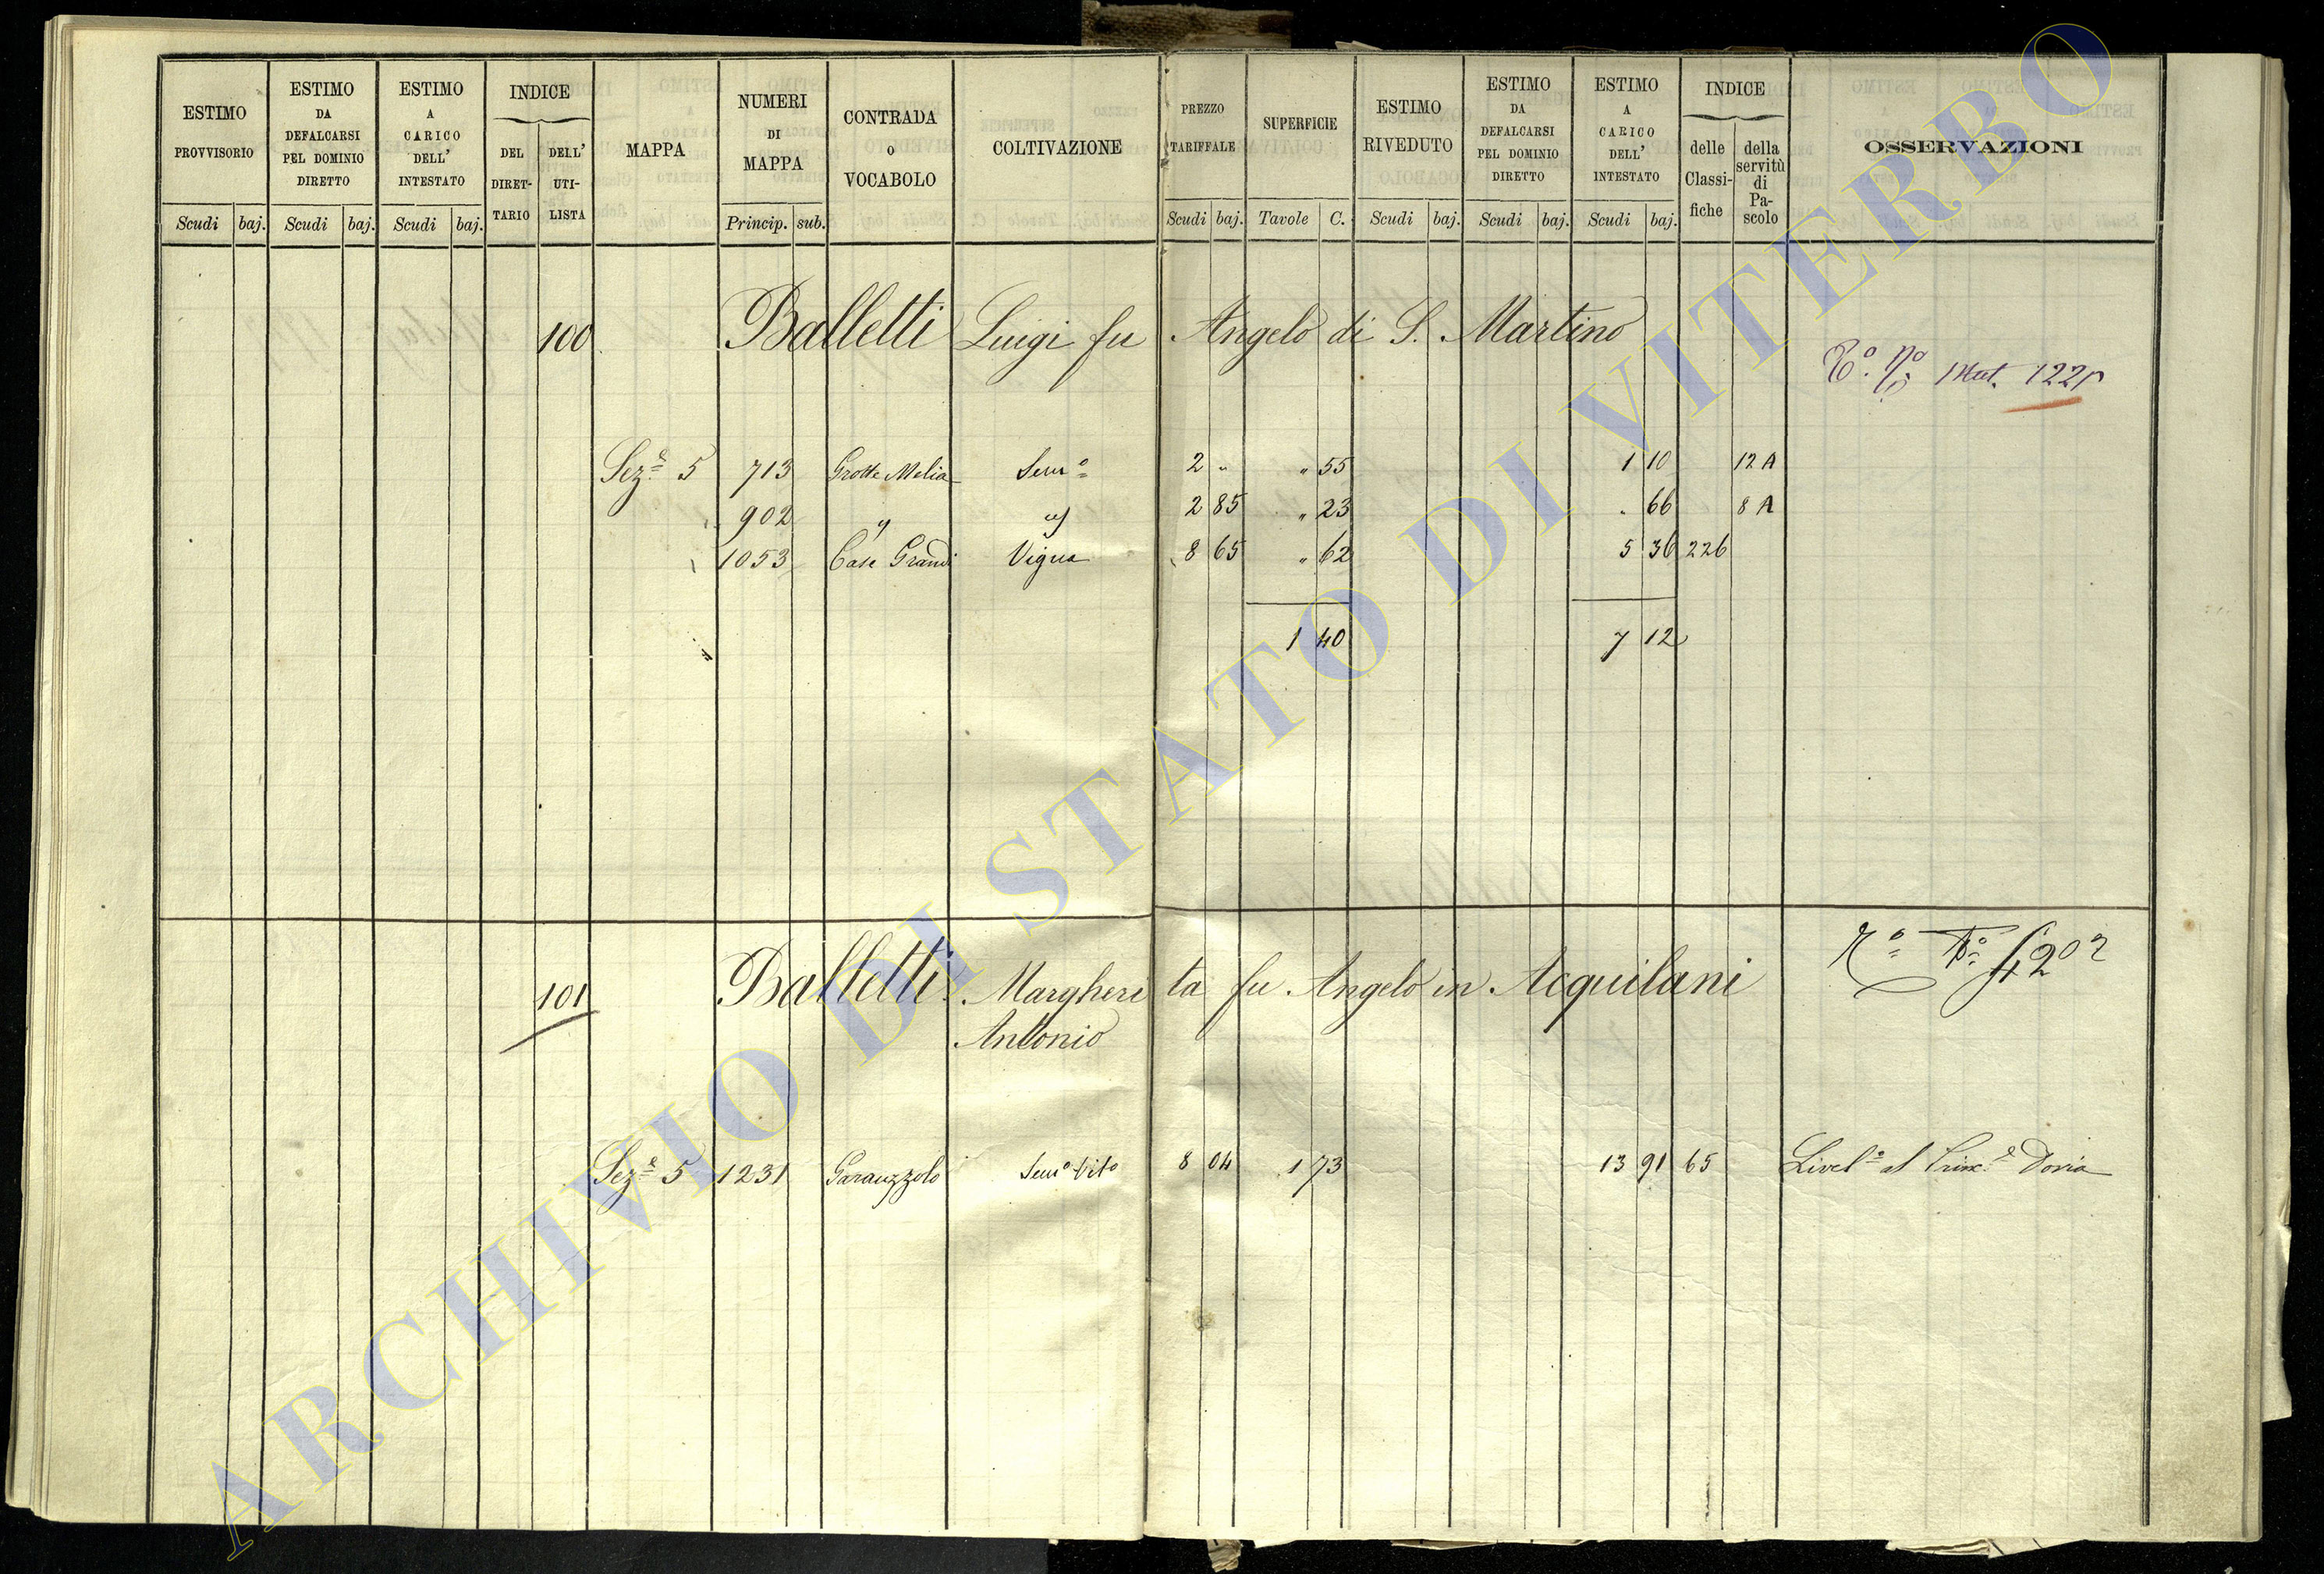 ESTIMO PROVVISORIO
ESTIMO DA DEFALCARSI PEL DOMINIO DIRETTO
ESTIMO A CARICO DELL' INTESTATO
INDICE
DEL DIRET-TARIO
DELL' UTI-LISTA
MAPPA
NUMERI DI MAPPA
CONTRADA O VOCABOLO
COLTIVAZIONE
PREZZO TARIFFALE
SUPERFICIE
ESTIMO RIVEDUTO
ESTIMO DA DEFALCARSI PEL DOMINIO DIRETTO
ESTIMO A CARICO DELL' INTESTATO
INDICE
delle Classi-fiche
della servitù di Pa-scolo
OSSERVAZIONI
Scudi baj. Scudi baj. Scudi baj. Princip. sub. Scudi baj. Tavole C. Scudi baj. Scudi baj. Scudi baj.
100 Balletti Luigi fu Angelo di S. Martino
Sez.e 5 713 Grotte Melia Sem.o 2 " " 55 1 10 12 A
902 " " 2 85 " 23 . 66 8 A
1053 Case Grandi Vigna 8 65 " 62 5 36 226
1 40 7 12
101 Balletti Margherita fu Angelo in Acquilani
Antonio
Sez.e 5 1231 Garauzzolo Sem.o Vit.o 8 04 1 73 13 91 65 Livel.o al Princ.e Doria
ARCHIVIO DI STATO DI VITERBO